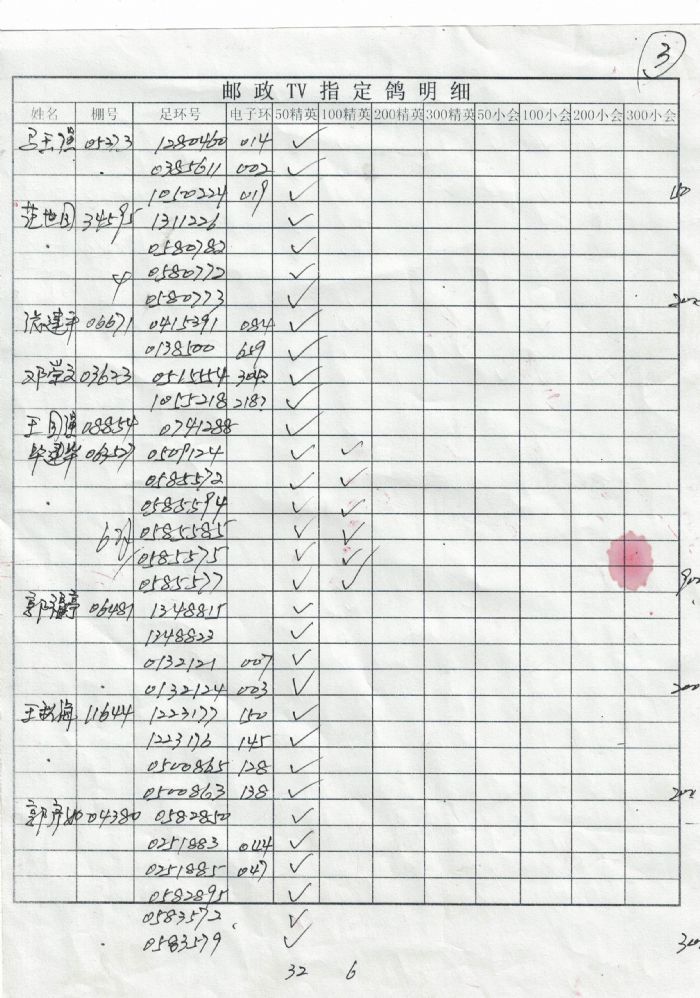 3
邮政TV指定鸽明细
姓名 棚号 足环号 电子环 50精英 100精英 200精英 300精英 50小会 100小会 200小会 300小会
马玉强 05273 1280460 014 ✓
0385611 002 ✓
1010224 019 ✓
范世国 34595 1311226 ✓
0580782 ✓
0580772 ✓
0580773 ✓ 200
建平 06671 0415391 084 ✓
0138500 659 ✓
邓荣文 03623 0515554 ✓
1055218 ✓
王国强 08854 0741288 ✓
毕建华 063527 0509124 ✓ ✓
0585572 ✓ ✓
0585594 ✓ ✓
0585585 ✓ ✓
0585575 ✓ ✓
0585577 ✓ ✓ 900
郭 亭 06481 1348815 ✓
1348823 ✓
0132121 007 ✓
0132124 003 ✓ 200
王 海 11644 1223177 150 ✓
1223176 145 ✓
0500865 128 ✓
0500863 138 ✓ 200
郭 04380 0582850 ✓
0251883 044 ✓
0251885 047 ✓
0582895 ✓
0583572 ✓
0583579 ✓ 300
32 6